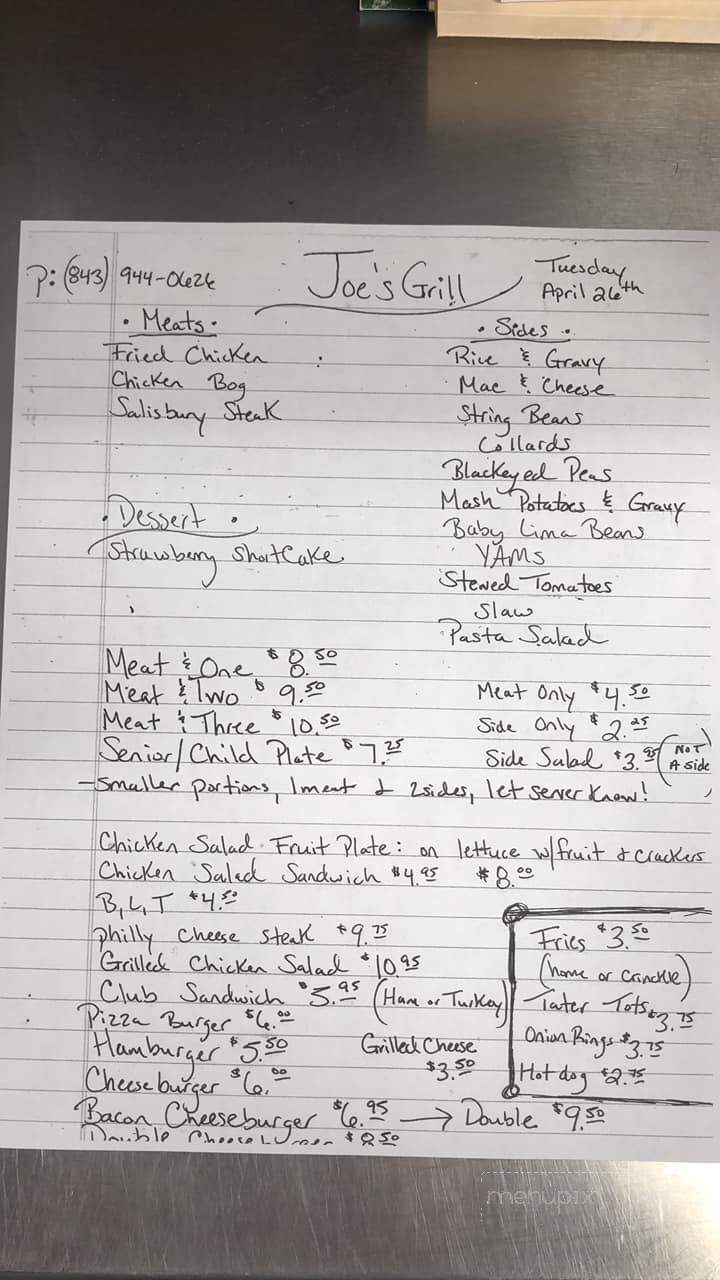 P: (843) 944-0626
Joe's Grill
Tuesday
April 26th
• Meats •
Fried Chicken
Chicken Bog
Salisbury Steak
• Sides •
Rice & Gravy
Mac & Cheese
String Beans
Collards
Blackeyed Peas
Mash Potatoes & Gravy
Baby Lima Beans
YAMs
Stewed Tomatoes
Slaw
Pasta Salad
• Dessert •
Strawberry Shortcake
Meat & One $8.50
Meat & Two $9.50
Meat & Three $10.50
Senior/Child Plate $7.25
Meat Only $4.50
Side Only $2.25
Side Salad $3.95 (NOT A side)
- smaller portions, 1 meat & 2 sides, let server know!
Chicken Salad Fruit Plate: on lettuce w/fruit & crackers
$8.00
Chicken Salad Sandwich $4.95
B, L, T $4.50
Philly Cheese Steak $9.75
Grilled Chicken Salad $10.95
Club Sandwich $5.95 (Ham or Turkey)
Pizza Burger $6.00
Hamburger $5.50
Cheeseburger $6.00
Grilled Cheese
$3.50
Fries $3.50
(home or Crinckle)
Tater Tots $3.75
Onion Rings $3.75
Hot dog $2.75
Bacon Cheeseburger $6.95 → Double $9.50
Double Cheeseburger $8.50
menupix